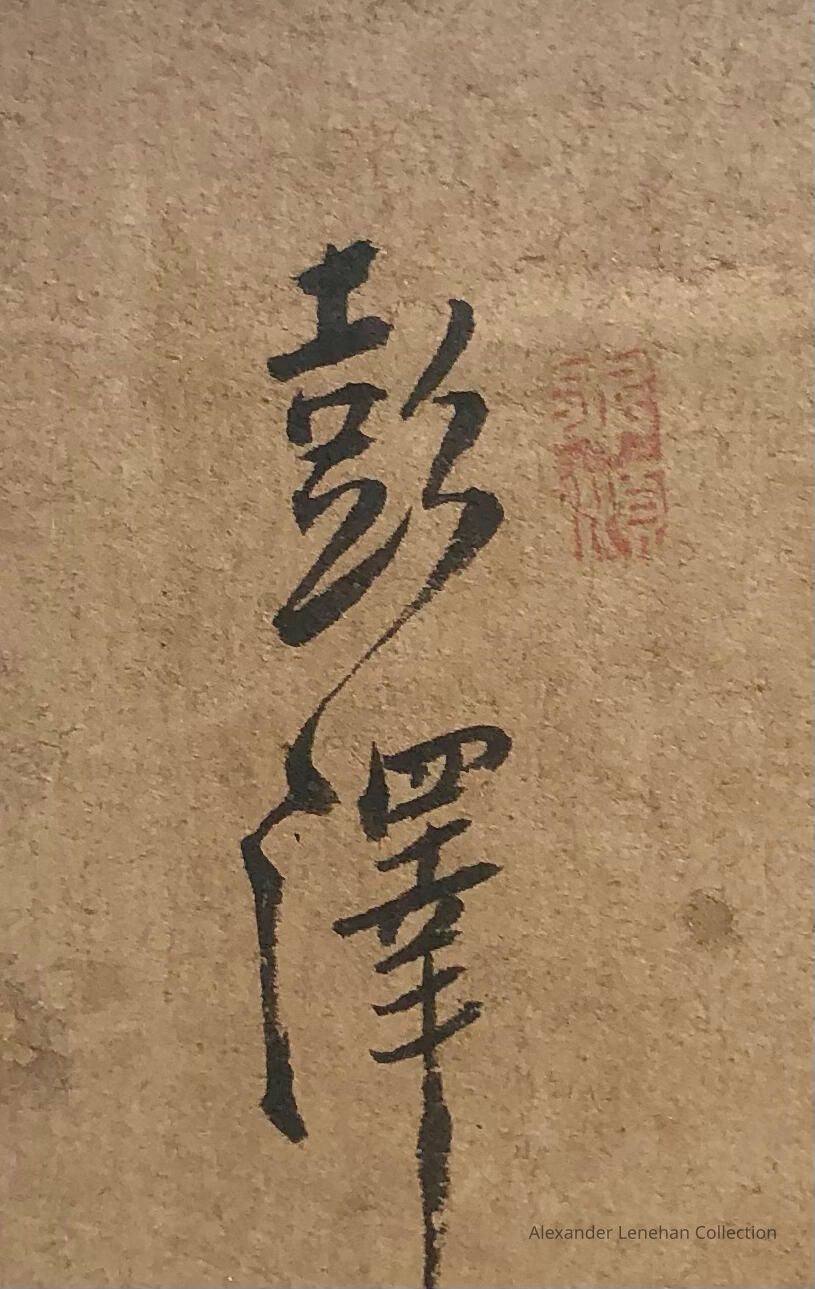 彭澤
Alexander Lenehan Collection